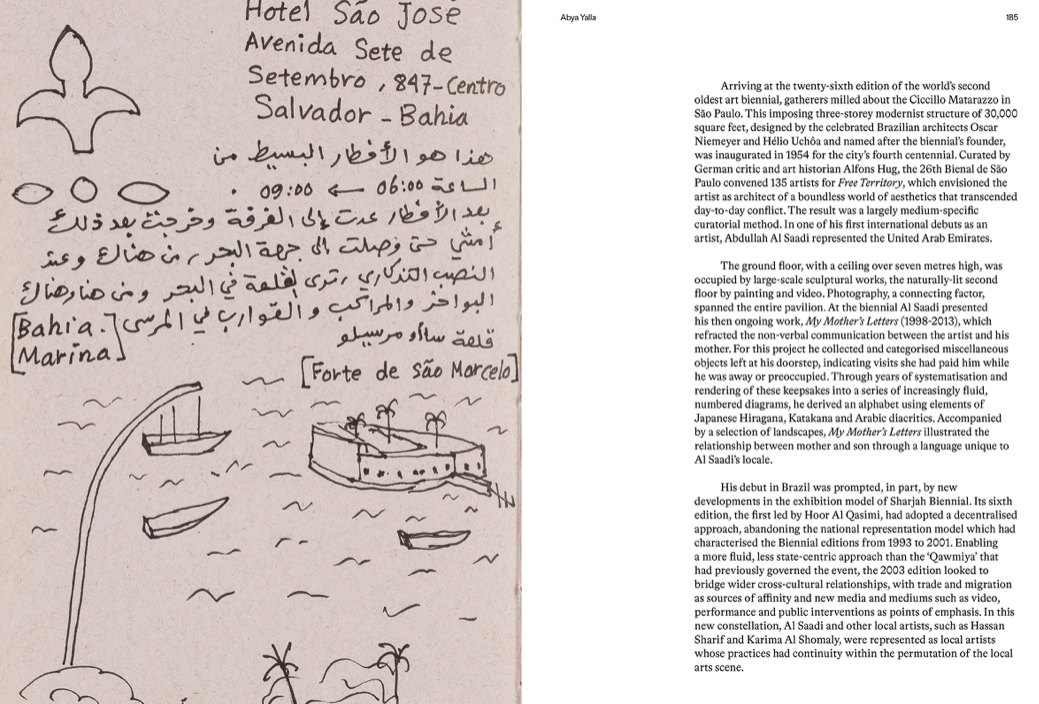 Hotel São José
Avenida Sete de
Setembro, 847-Centro
Salvador - Bahia
هذا هو الأفطار البسيط من
الساعة 06:00 ← 09:00 .
بعد الأفطار عدت إلى الغرفة وخرجت بعد ذلك
أمشي حتى وصلت الى جهة البحر، من هناك وعند
النصب التذكاري، ترى لقلعة في البحر ومن هنا وهناك
البواخر والمراكب والقوارب في المرسى
[Bahia.
Marina]
قلعة ساو مرسيلو
[Forte de São Marcelo]
Abya Yalla
185
Arriving at the twenty-sixth edition of the world's second
oldest art biennial, gatherers milled about the Ciccillo Matarazzo in
São Paulo. This imposing three-storey modernist structure of 30,000
square feet, designed by the celebrated Brazilian architects Oscar
Niemeyer and Hélio Uchôa and named after the biennial's founder,
was inaugurated in 1954 for the city's fourth centennial. Curated by
German critic and art historian Alfons Hug, the 26th Bienal de São
Paulo convened 135 artists for Free Territory, which envisioned the
artist as architect of a boundless world of aesthetics that transcended
day-to-day conflict. The result was a largely medium-specific
curatorial method. In one of his first international debuts as an
artist, Abdullah Al Saadi represented the United Arab Emirates.
The ground floor, with a ceiling over seven metres high, was
occupied by large-scale sculptural works, the naturally-lit second
floor by painting and video. Photography, a connecting factor,
spanned the entire pavilion. At the biennial Al Saadi presented
his then ongoing work, My Mother's Letters (1998-2013), which
refracted the non-verbal communication between the artist and his
mother. For this project he collected and categorised miscellaneous
objects left at his doorstep, indicating visits she had paid him while
he was away or preoccupied. Through years of systematisation and
rendering of these keepsakes into a series of increasingly fluid,
numbered diagrams, he derived an alphabet using elements of
Japanese Hiragana, Katakana and Arabic diacritics. Accompanied
by a selection of landscapes, My Mother's Letters illustrated the
relationship between mother and son through a language unique to
Al Saadi's locale.
His debut in Brazil was prompted, in part, by new
developments in the exhibition model of Sharjah Biennial. Its sixth
edition, the first led by Hoor Al Qasimi, had adopted a decentralised
approach, abandoning the national representation model which had
characterised the Biennial editions from 1993 to 2001. Enabling
a more fluid, less state-centric approach than the 'Qawmiya' that
had previously governed the event, the 2003 edition looked to
bridge wider cross-cultural relationships, with trade and migration
as sources of affinity and new media and mediums such as video,
performance and public interventions as points of emphasis. In this
new constellation, Al Saadi and other local artists, such as Hassan
Sharif and Karima Al Shomaly, were represented as local artists
whose practices had continuity within the permutation of the local
arts scene.